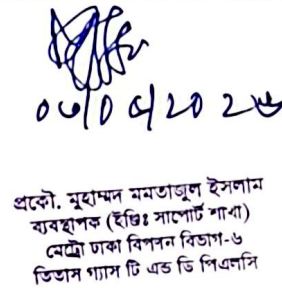 ০৩/০৫/২০২৬
প্রকৌ. মুহাম্মদ মমতাজুল ইসলাম
ব্যবস্থাপক (ইঞ্জিঃ সাপোর্ট শাখা)
মেট্রো ঢাকা বিপনন বিভাগ-৬
তিতাস গ্যাস টি এন্ড ডি পিএলসি